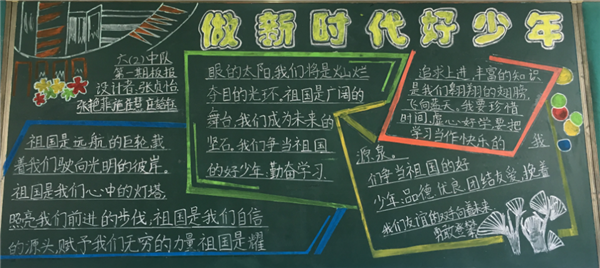 做新时代好少年
六(2)中队
第一期板报
设计者:张贞怡
祖国是远航的巨轮,载
着我们驶向光明的彼岸。
祖国是我们心中的灯塔,
照亮我们前进的步伐,祖国是我们自信
的源头,赋予我们无穷的力量 祖国是耀
眼的太阳,我们将是灿烂
夺目的光环,祖国是广阔的
舞台,我们成为未来的
坚石,我们争当祖国
的好少年:勤奋学习.
追求上进,丰富的知识
是我们翱翔的翅膀,
飞向蓝天,我要珍惜
时间,虚心好学,要把
学习当作快乐的
源泉。 我
们争当祖国的好
少年:品德优良 团结友爱,挽着
我们友谊的双手向着未来
勇敢逐梦